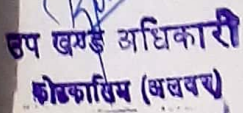 उप खण्ड अधिकारी
कोटकासिम (अलवर)